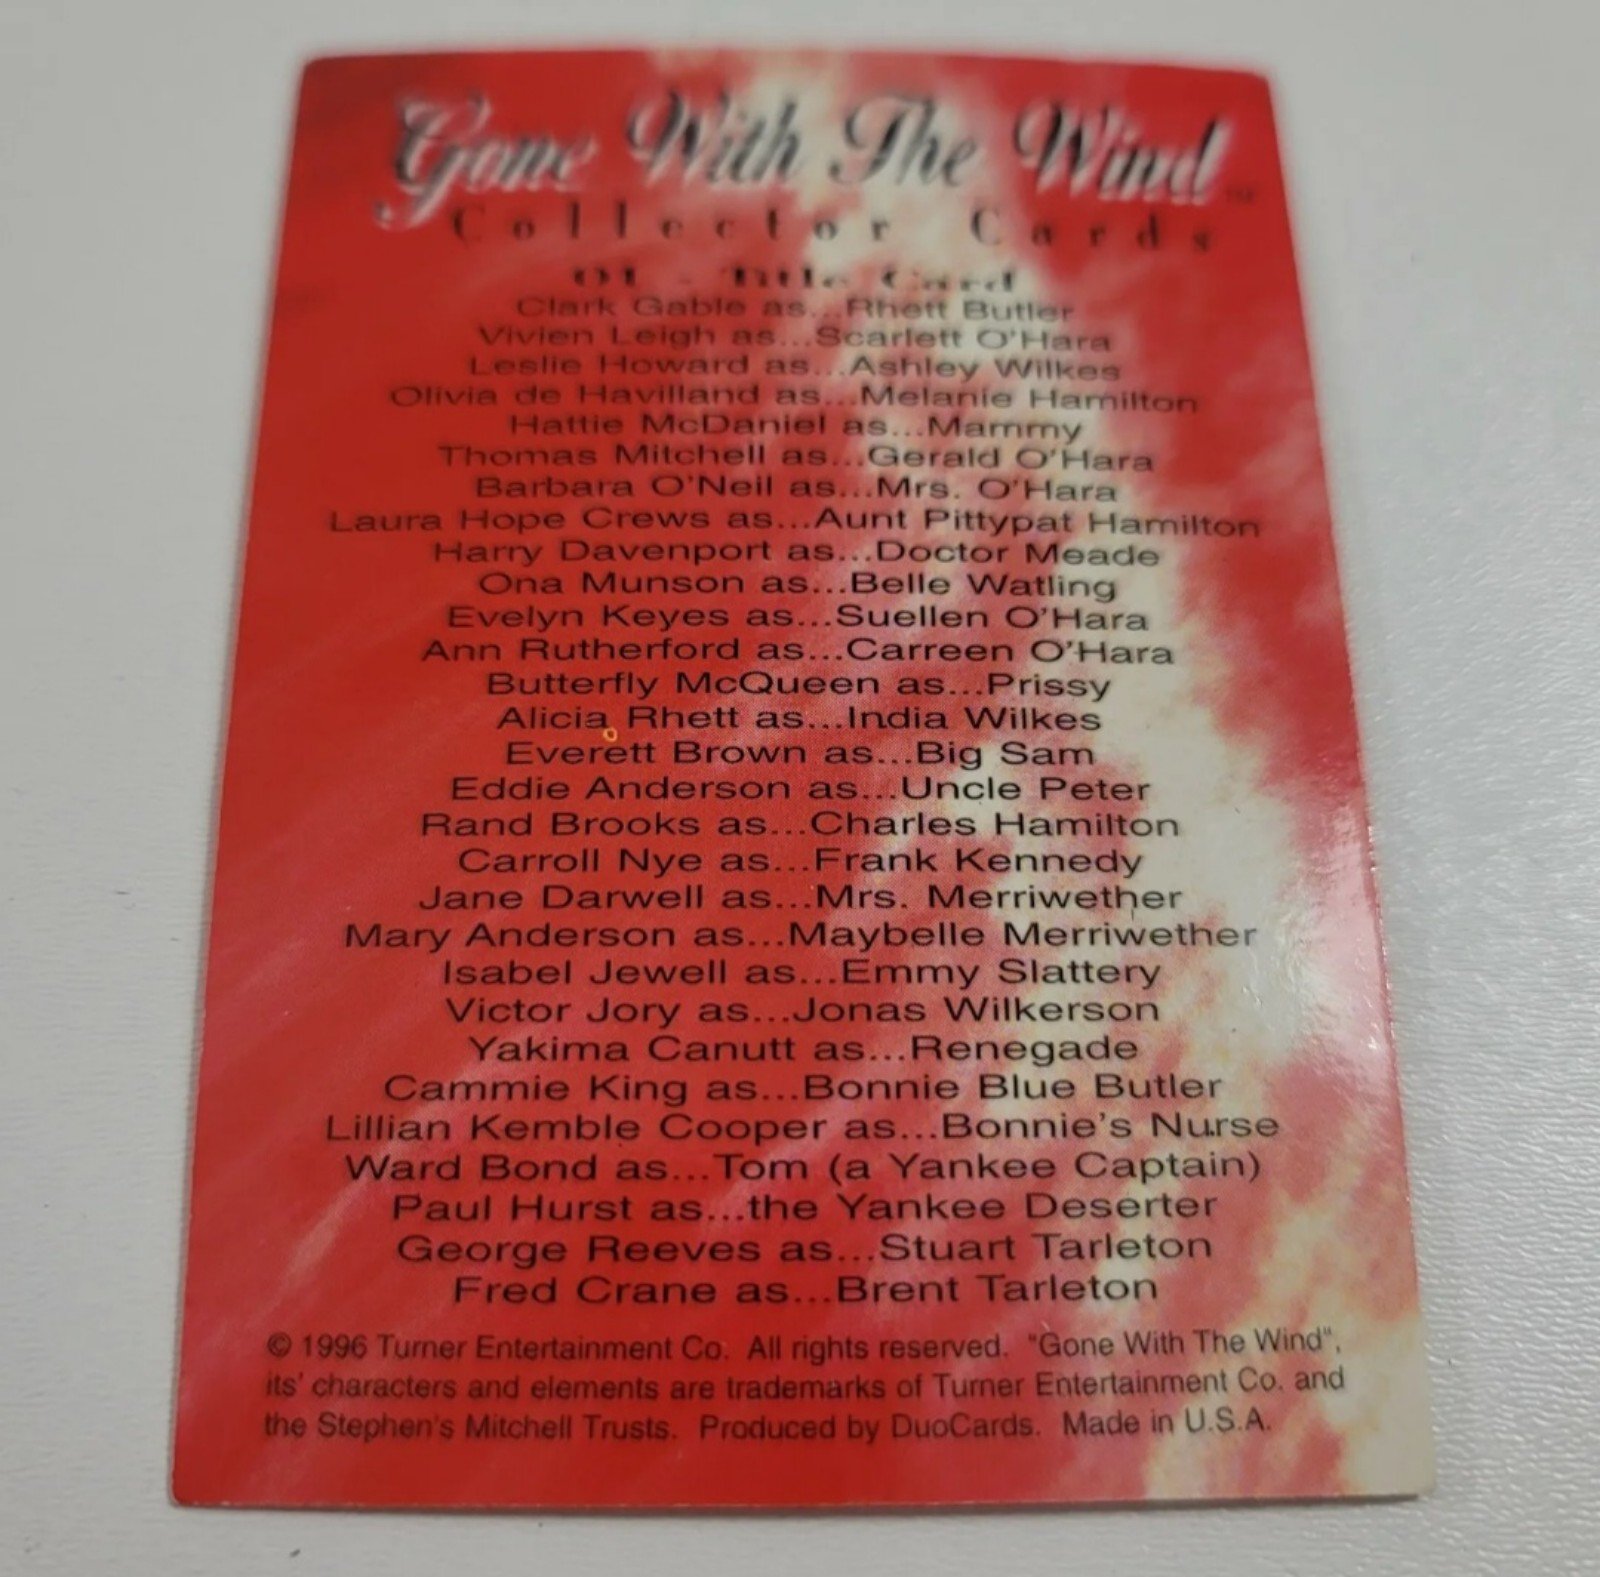 Gone With The Wind™
Collector Cards
01 - Title Card
Clark Gable as...Rhett Butler
Vivien Leigh as...Scarlett O'Hara
Leslie Howard as...Ashley Wilkes
Olivia de Havilland as...Melanie Hamilton
Hattie McDaniel as...Mammy
Thomas Mitchell as...Gerald O'Hara
Barbara O'Neil as...Mrs. O'Hara
Laura Hope Crews as...Aunt Pittypat Hamilton
Harry Davenport as...Doctor Meade
Ona Munson as...Belle Watling
Evelyn Keyes as...Suellen O'Hara
Ann Rutherford as...Carreen O'Hara
Butterfly McQueen as...Prissy
Alicia Rhett as...India Wilkes
Everett Brown as...Big Sam
Eddie Anderson as...Uncle Peter
Rand Brooks as...Charles Hamilton
Carroll Nye as...Frank Kennedy
Jane Darwell as...Mrs. Merriwether
Mary Anderson as...Maybelle Merriwether
Isabel Jewell as...Emmy Slattery
Victor Jory as...Jonas Wilkerson
Yakima Canutt as...Renegade
Cammie King as...Bonnie Blue Butler
Lillian Kemble Cooper as...Bonnie's Nurse
Ward Bond as...Tom (a Yankee Captain)
Paul Hurst as...the Yankee Deserter
George Reeves as...Stuart Tarleton
Fred Crane as...Brent Tarleton
© 1996 Turner Entertainment Co. All rights reserved. "Gone With The Wind",
its' characters and elements are trademarks of Turner Entertainment Co. and
the Stephen's Mitchell Trusts. Produced by DuoCards. Made in U.S.A.